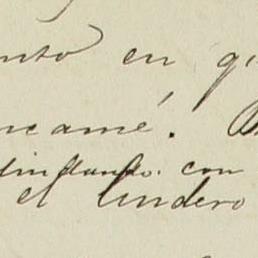 nto en q
ncamé.
lindando. con
el lindero